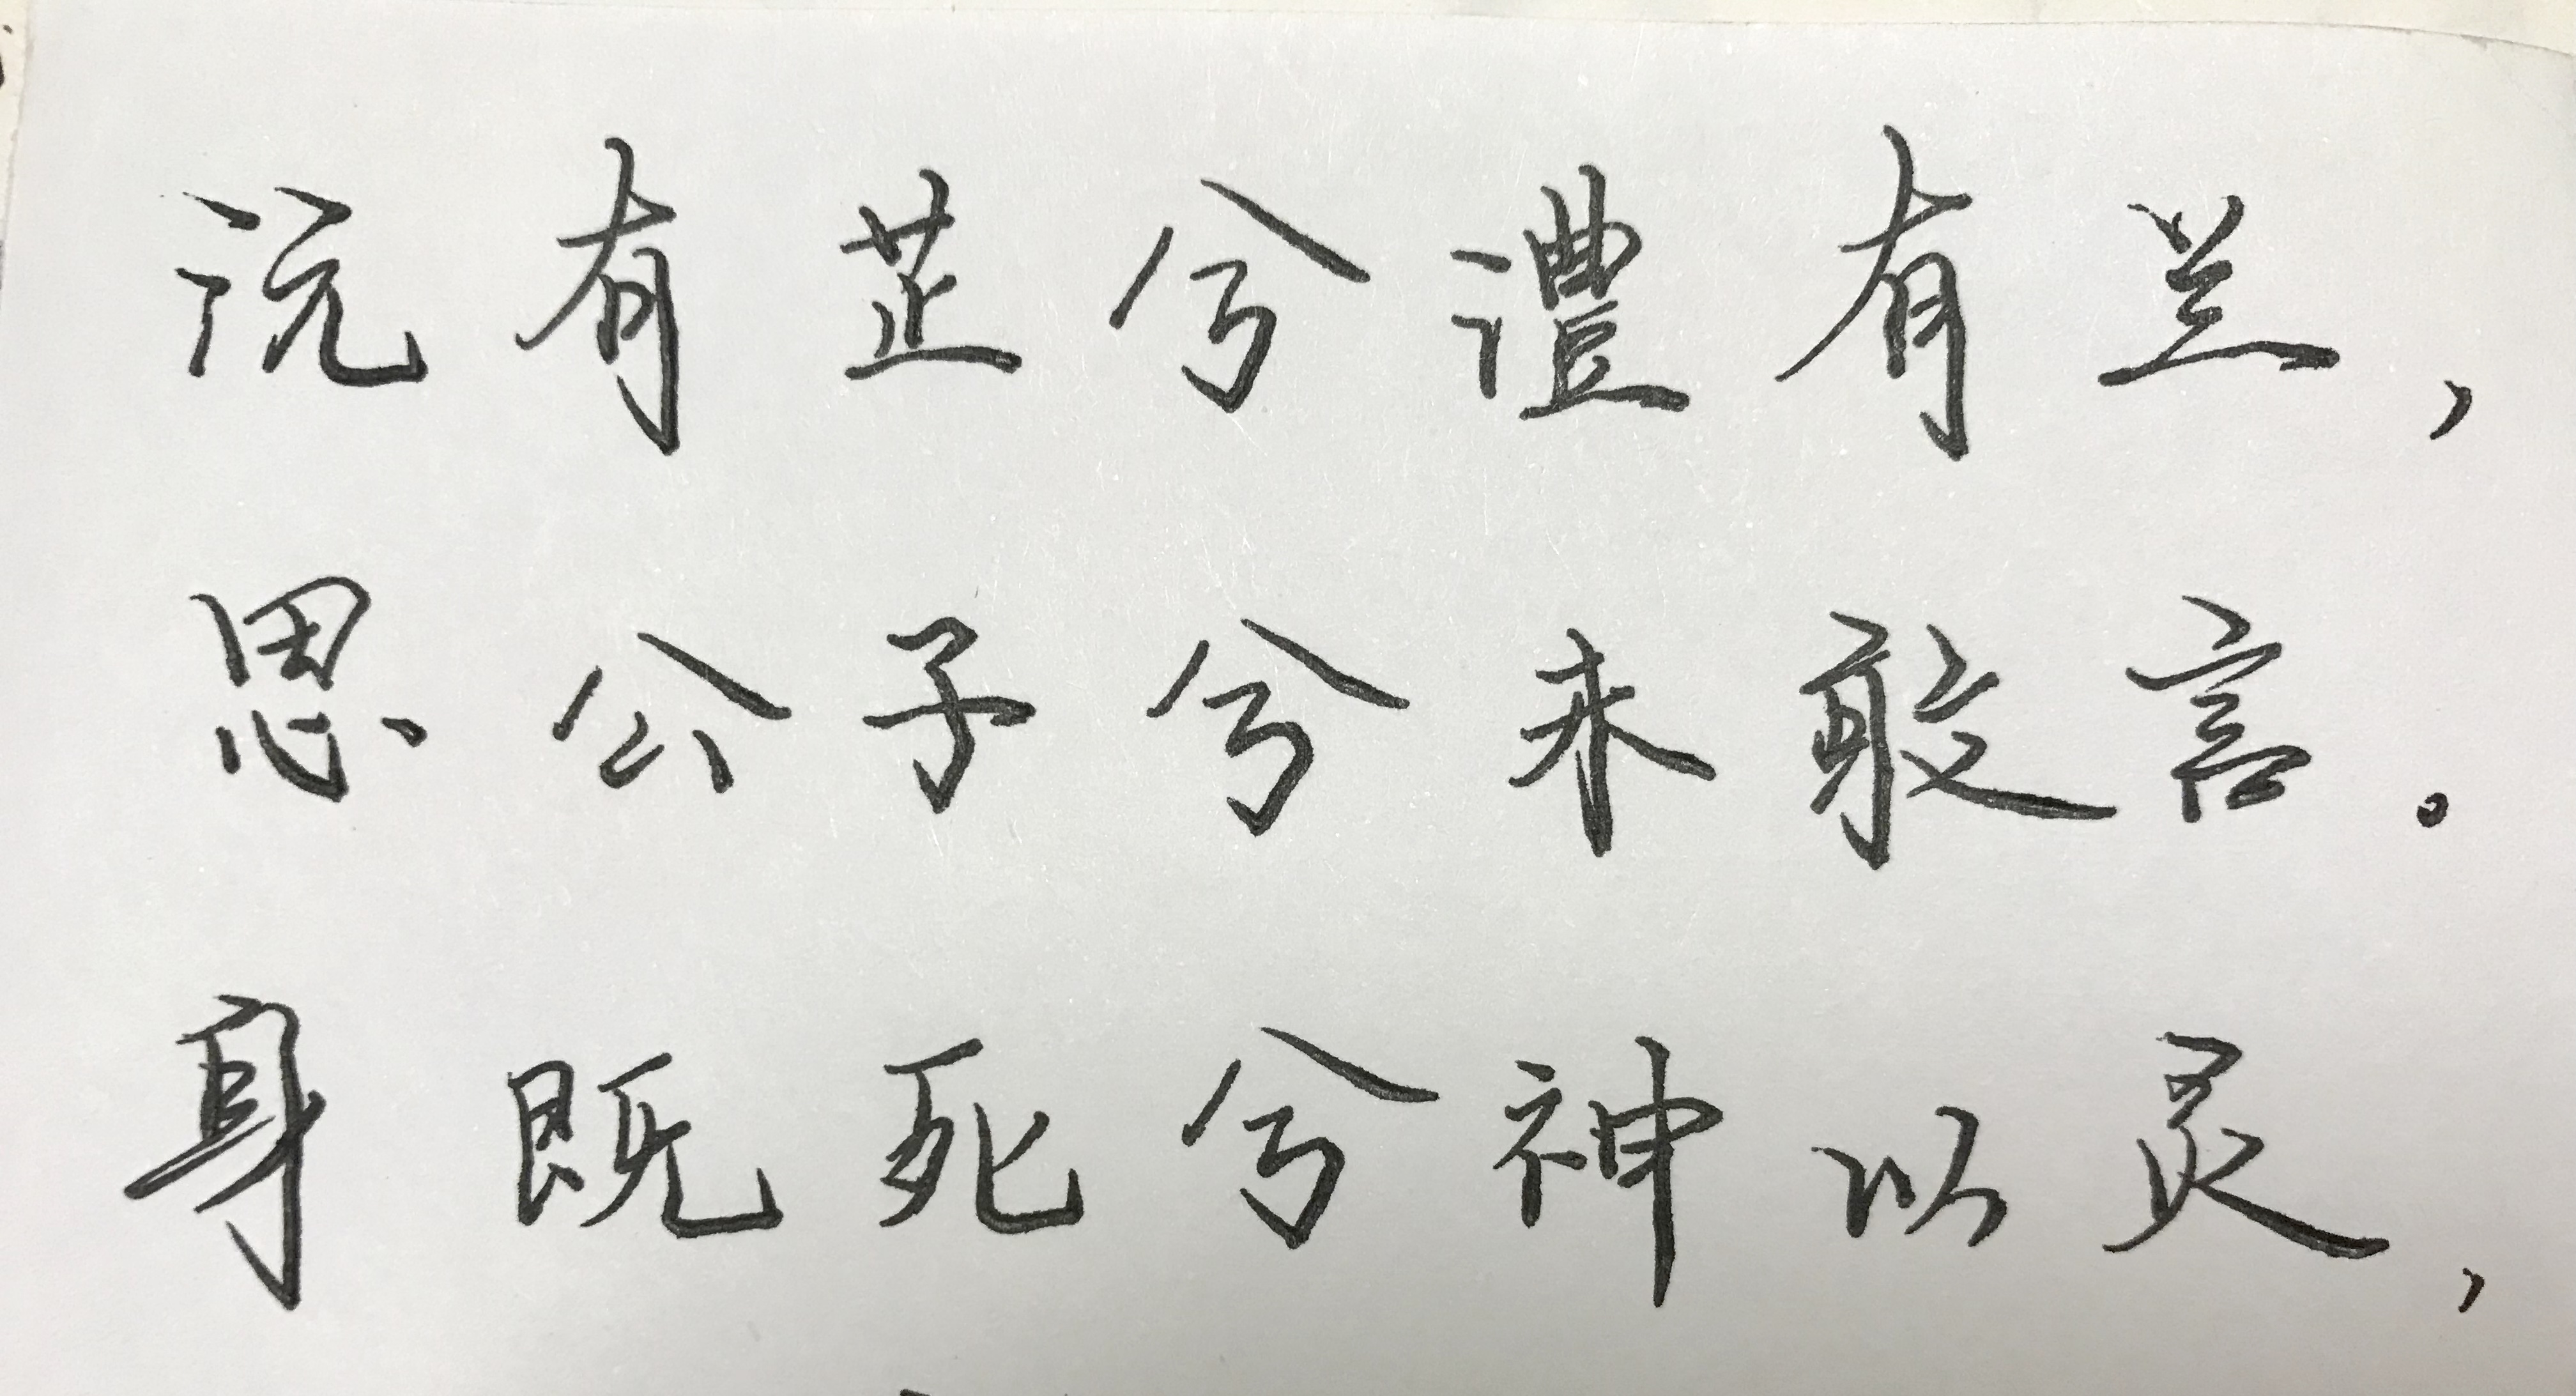 沅有芷兮澧有兰，
思公子兮未敢言。
身既死兮神以灵，